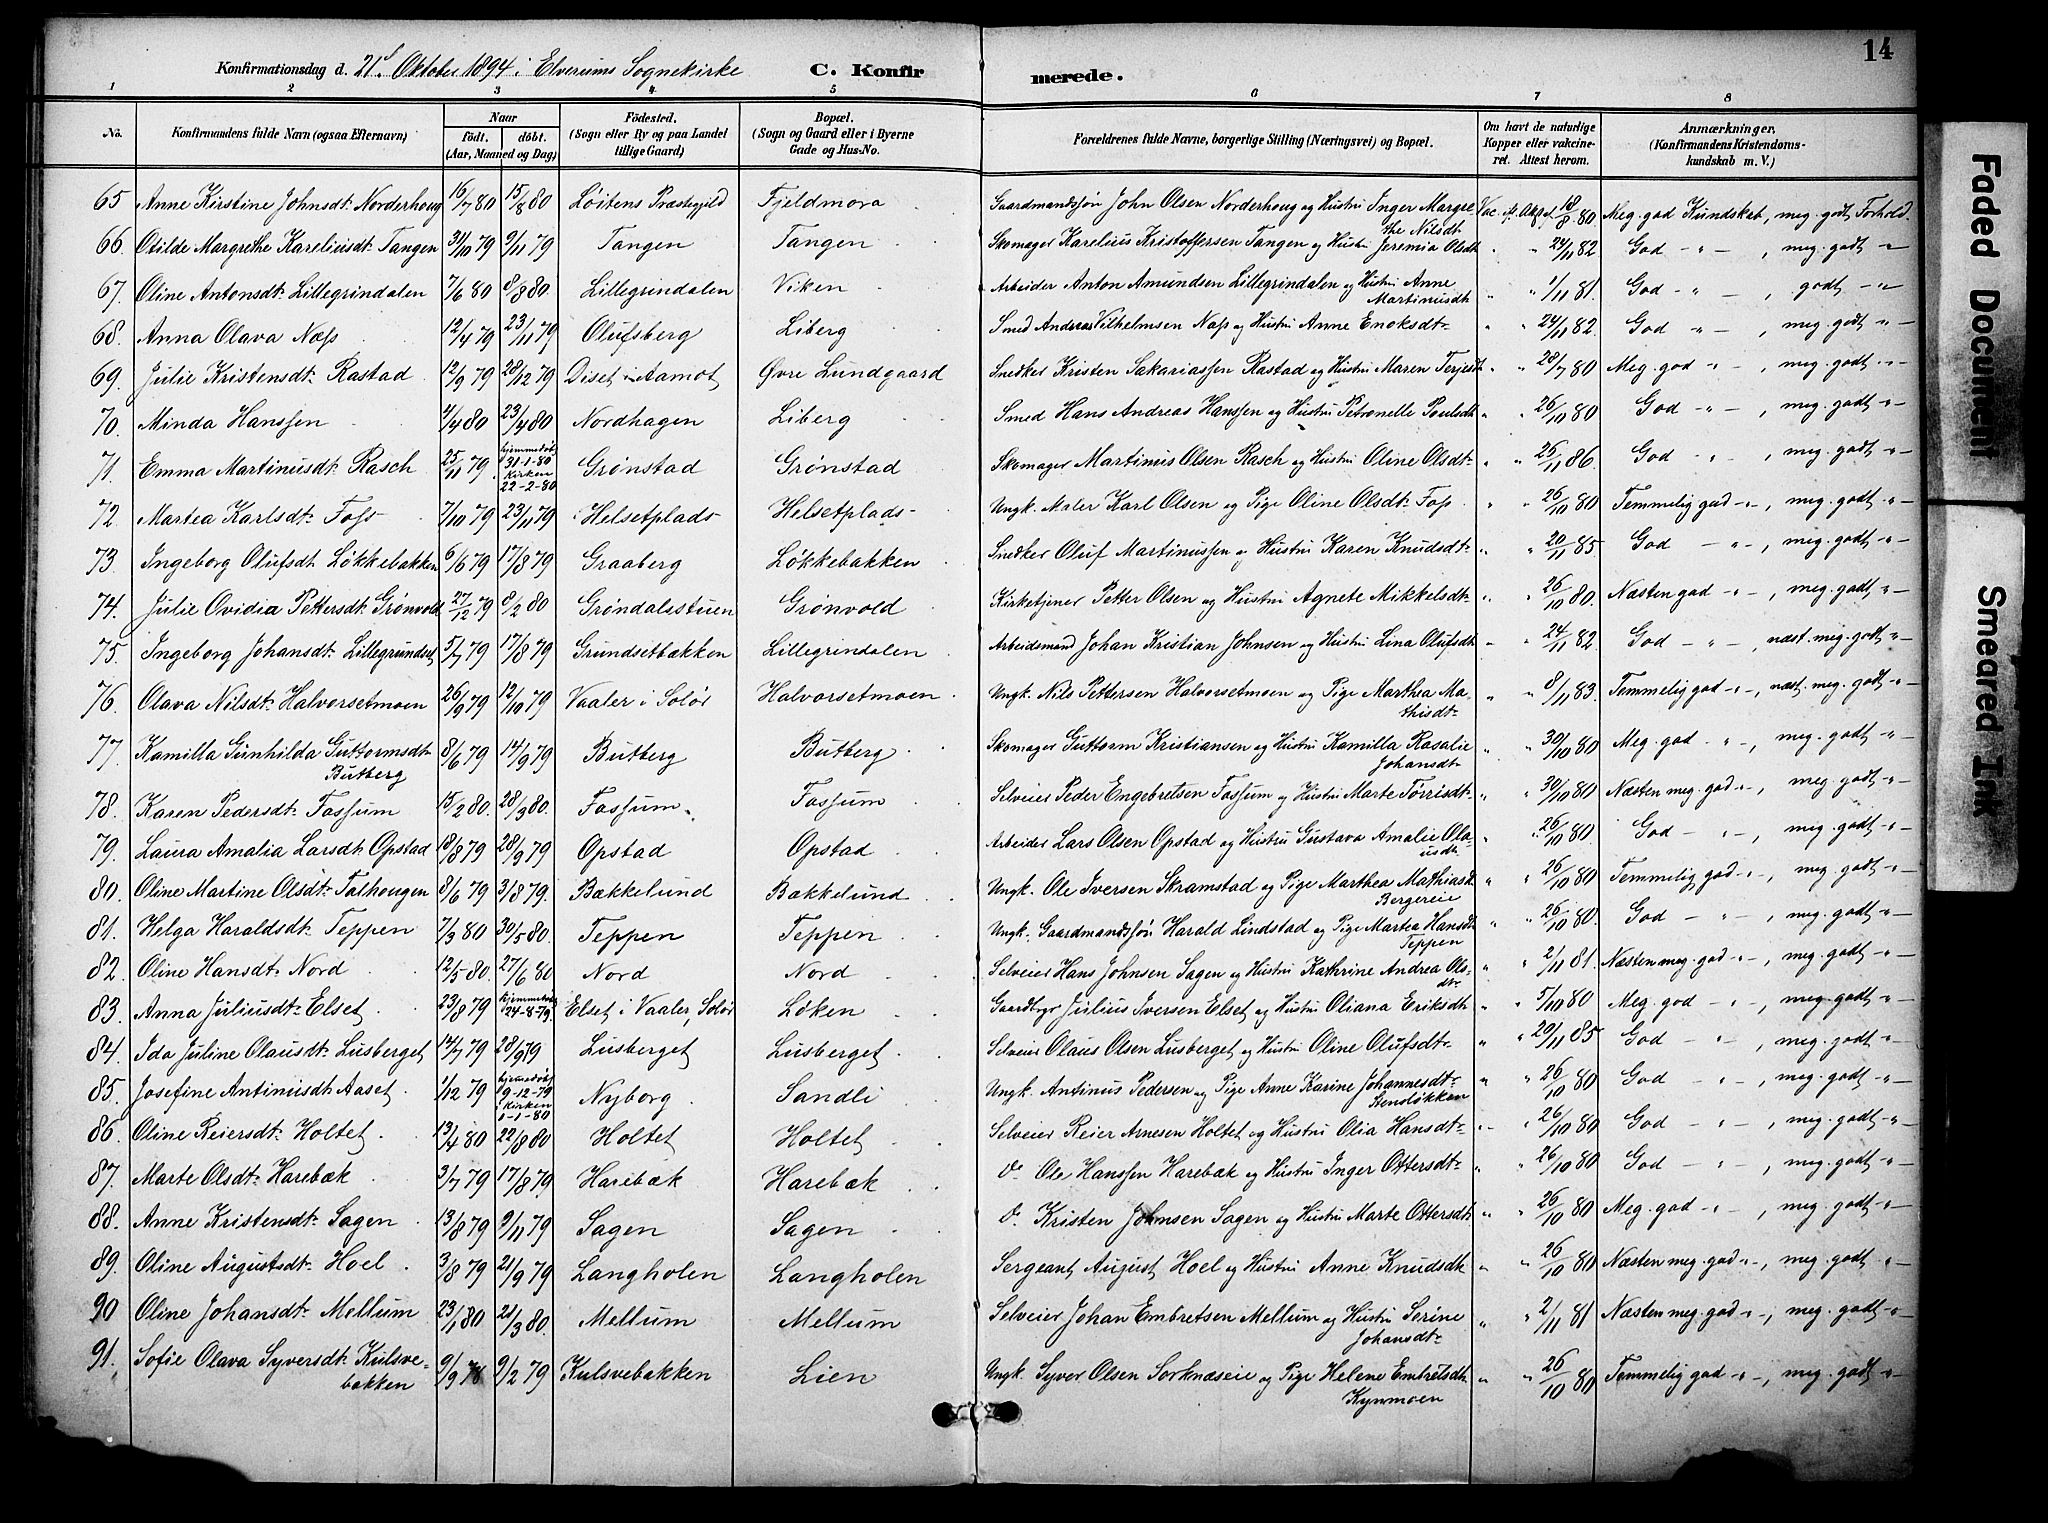 14
Konfirmationsdag d. 21de Oktober 1894 i Elverums Sognekirke C. Konfirmerede.
1 2 3 4 5 6 7 8
No. Konfirmandens fulde Navn (ogsaa Efternavn) Naar födt. döbt. (Aar, Maaned og Dag) Födested. (Sogn eller By og paa Landet tillige Gaard) Bopæl. (Sogn og Gaard eller i Byerne Gade og Hus-No. Forældrenes fulde Navne, borgerlige Stilling (Næringsvei) og Bopæl. Om havt de naturlige Kopper eller vakcineret. Attest herom. Anmærkninger. (Konfirmandens Kristendomskundskab m. V.)
65 Anne Kirstine Johnsdt. Norderhoug 16/7 80 15/8 80 Løitens Præstegjeld Fjeldmora Gaardmandssøn John Olsen Norderhoug og Hustru Inger Margrethe Nilsdt. Vac. 18/8 80 Meg. god Kundskab, meg. godt Forhold.
66. Otilde Margrethe Kareliusdt. Tangen 31/10 79 9/11 79 Tangen Tangen Skomager Karelius Kristoffersen Tangen og Hustru Jeremia Olsdt. " " 24/11 82. God - " -, meg. godt "
67. Oline Antonsdt. Lillegrindalen 7/6 80 8/8 80. Lillegrindalen Viken Arbeider Anton Amundsen Lillegrindalen og Hustru Anne Martinusdt. " " 1/11 81. God - " -, godt - "
68. Anna Olava Næss 12/4 79 23/11 79 Olufsberg Liberg Smed Andreas Vilhelmsen Næss og Hustru Anne Enoksdt. " " 24/11 82. God " -, meg. godt "
69. Julie Kristensdt. Rastad 12/9 79 28/12 79 Diset i Aamot Øvre Lundgaard Snedker Kristen Sakariassen Rastad og Hustru Maren Terjesdt. " " 28/7 80 Meg. god " -, meg. godt "
70. Minda Hanssen 4/4 80 23/4 80 Nordhagen Liberg Smed Hans Andreas Hanssen og Hustru Petronelle Poulsdt. " " 26/10 80 God - " -, meg. godt "
71. Emma Martinusdt. Rasch 25/11 79 hjemmedøbt 31-1-80 Kirken 22-2-80 Grønstad Grønstad Skomager Martinus Olsen Rasch og Hustru Oline Olsdt. " " 26/11 86. God - " -, meg. godt "
72. Martea Karlsdt. Foss 7/10 79 23/11 79 Helsetplads Helsetplads Ungk. Maler Karl Olsen og Pige Oline Olsdt. Foss " " 26/10 80 Temmelig god " -, meg. godt "
73. Ingeborg Olufsdt. Løkkebakken 6/6 79 17/8 79 Graaberg Løkkebakken Snedker Oluf Martinussen og Hustru Karen Knudsdt. " " 20/11 85 God - " -, meg. godt "
74. Julie Ovidia Pettersdt. Grønvold 27/12 79 8/2 80 Grøndalsstuen Grønvold Kirketjener Petter Olsen og Hustru Agnete Mikkelsdt. " " 26/10 80. Næsten god " -, meg. godt "
75. Ingeborg Johansdt. Lillegrundset 5/7 79 17/8 79 Grundsetbækken Lillegrindalen Arbeidsmand Johan Kristian Johnsen og Hustru Lina Olufsdt. " " 24/11 82. God - " -, næst. meg. godt "
76. Olava Nilsdt. Halvorsetmoen 26/9 79 12/10 79 Vaaler i Solør Halvorsetmoen Ungk. Nils Pettersen Halvorsetmoen og Pige Marthea Mathisdt. " " 8/11 83. Temmelig god " -, næst. meg. godt "
77. Kamilla Gunhilda Guttormsdt. Butberg 8/6 79 14/9 79 Butberg Butberg Skomager Guttorm Kristiansen og Hustru Kamilla Rosalie Johansdt. " " 30/10 80 Meg. god " -, meg. godt "
78. Karen Pedersdt. Fossum 15/2 80. 28/3 80. Fossum Fossum Selveier Peder Engebretsen Fossum og Hustru Marte Tørrisdt. " " 30/10 80 Næsten meg. god " -, meg. godt "
79. Laura Amalia Larsdt. Opstad 18/8 79 28/9 79 Opstad Opstad Arbeider Lars Olsen Opstad og Hustru Gustava Amalie Olausdt. " " 26/10 80 God - " -, meg. godt "
80. Oline Martine Olsdt. Talhougen 8/6 79 3/8 79. Bækkelund Bækkelund Ungk. Ole Iversen Skramstad og Pige Marthea Mathiasdt. Bergereie " " 26/10 80 Temmelig god " -, meg. godt "
81. Helga Haraldsdt. Teppen 7/3 80 30/5 80. Teppen Teppen Ungk. Gaardmandssøn Harald Lindstad og Pige Martea Hansdt. Teppen " " 26/10 80. God - " -, meg. godt "
82. Oline Hansdt. Nord 12/5 80. 27/6 80 Nord Nord Selveier Hans Johnsen Sagen og Hustru Kathrine Andrea Olsdt. " " 2/11 81. Næsten meg. god " -, meg. godt "
83. Anna Juliusdt. Elset 23/8 79 hjemmedøbt 24-8-79. Elset i Vaaler, Solør Løken Gaardbrgr Julius Iversen Elset og Hustru Oliana Eriksdt. " " 5/10 80 Meg. god - " -, meg. godt "
84. Ida Juline Olausdt. Lusberget 14/7 79 28/9 79 Lusberget Lusberget Selveier Olaus Olsen Lusberget og Hustru Oline Olufsdt. " " 20/11 85 God - " -, meg. godt "
85. Josefine Antinusdt. Aaset 1/12 79 hjemmedøbt 9-12-79 i Kirken 1-1-80 Nyborg Sandli Ungk. Antinus Pedersen og Pige Anne Karine Johannesdt. Stensløkken " " 26/10 80 God - " -, meg. godt "
86. Oline Reiersdt. Holtet 13/4 80 22/8 80 Holtet Holtet Selveier Reier Arnesen Holtet og Hustru Olia Hansdt. " " 26/10 80 God - " -, meg. godt "
87. Marte Olsdt. Harebæk 3/7 79 17/8 79 Harebæk Harebæk do. Ole Hanssen Harebæk og Hustru Inger Ottersdt. " " 26/10 80 God - " -, meg. godt "
88. Anne Kristensdt. Sagen 13/8 79 9/11 79 Sagen Sagen do. Kristen Johnsen Sagen og Hustru Marte Ottersdt. " " 26/10 80 Meg. god " -, meg. godt "
89. Oline Augustsdt. Hoel 3/8 79 21/9 79 Langholen Langholen Sergeant August Hoel og Hustru Anne Knudsdt. " " 26/10 80 Næsten meg. god " -, meg. godt "
90 Oline Johansdt. Mellum 23/1 80 21/3 80. Mellum Mellum Selveier Johan Embretsen Mellum og Hustru Serine Johansdt. " " 2/11 81 Næsten meg. god " -, meg. godt "
91. Sofie Olava Syversdt. Kulsvebakken 9/9 78 9/2 79 Kulsvebakken Lien Ungk. Syver Olsen Sorknæseie og Pige Helene Embretsdt. Kynmoen " " 26/10 80 Temmelig god " -, meg. godt "
Faded Document
Smeared Ink